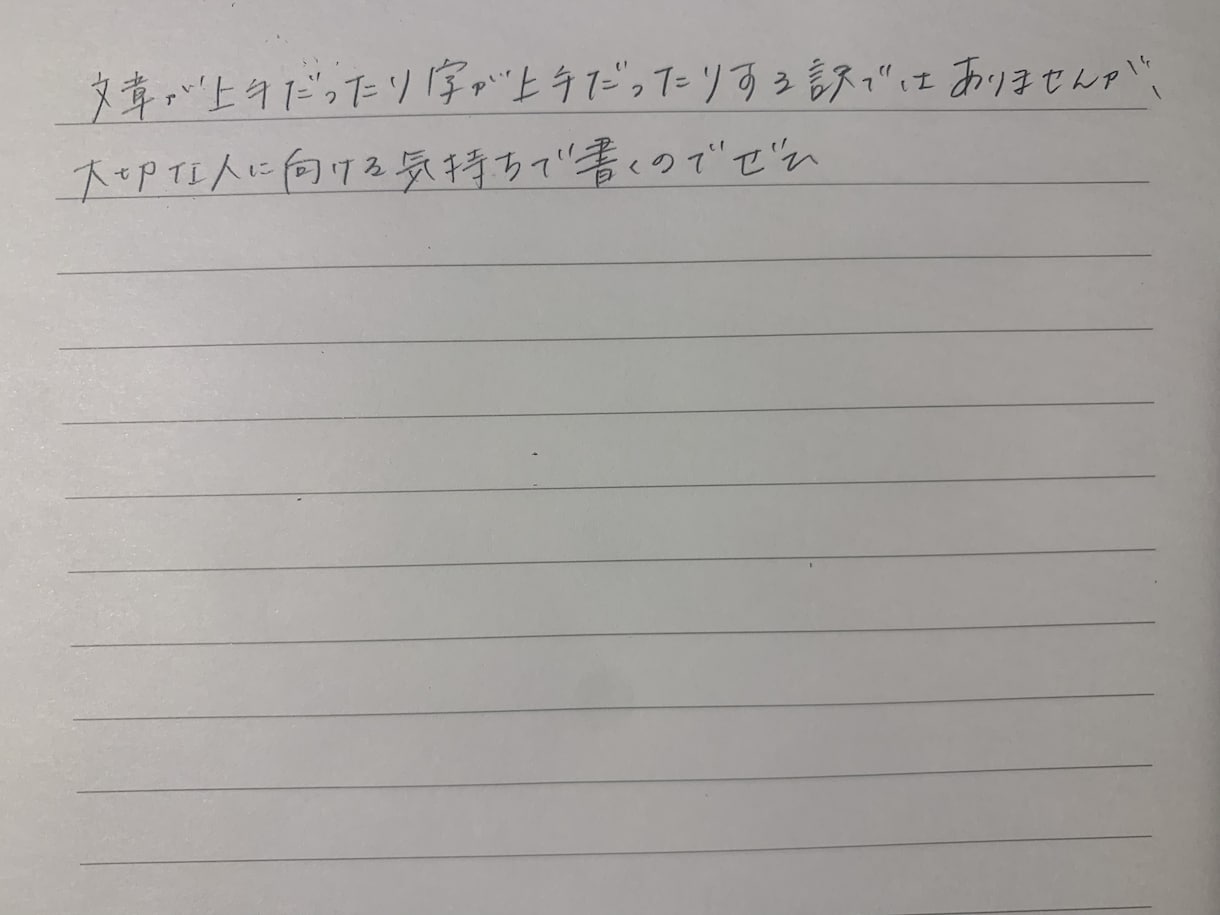 文章が上手だったり字が上手だったりする訳ではありませんが、
大切な人に向ける気持ちで書くのでぜひ